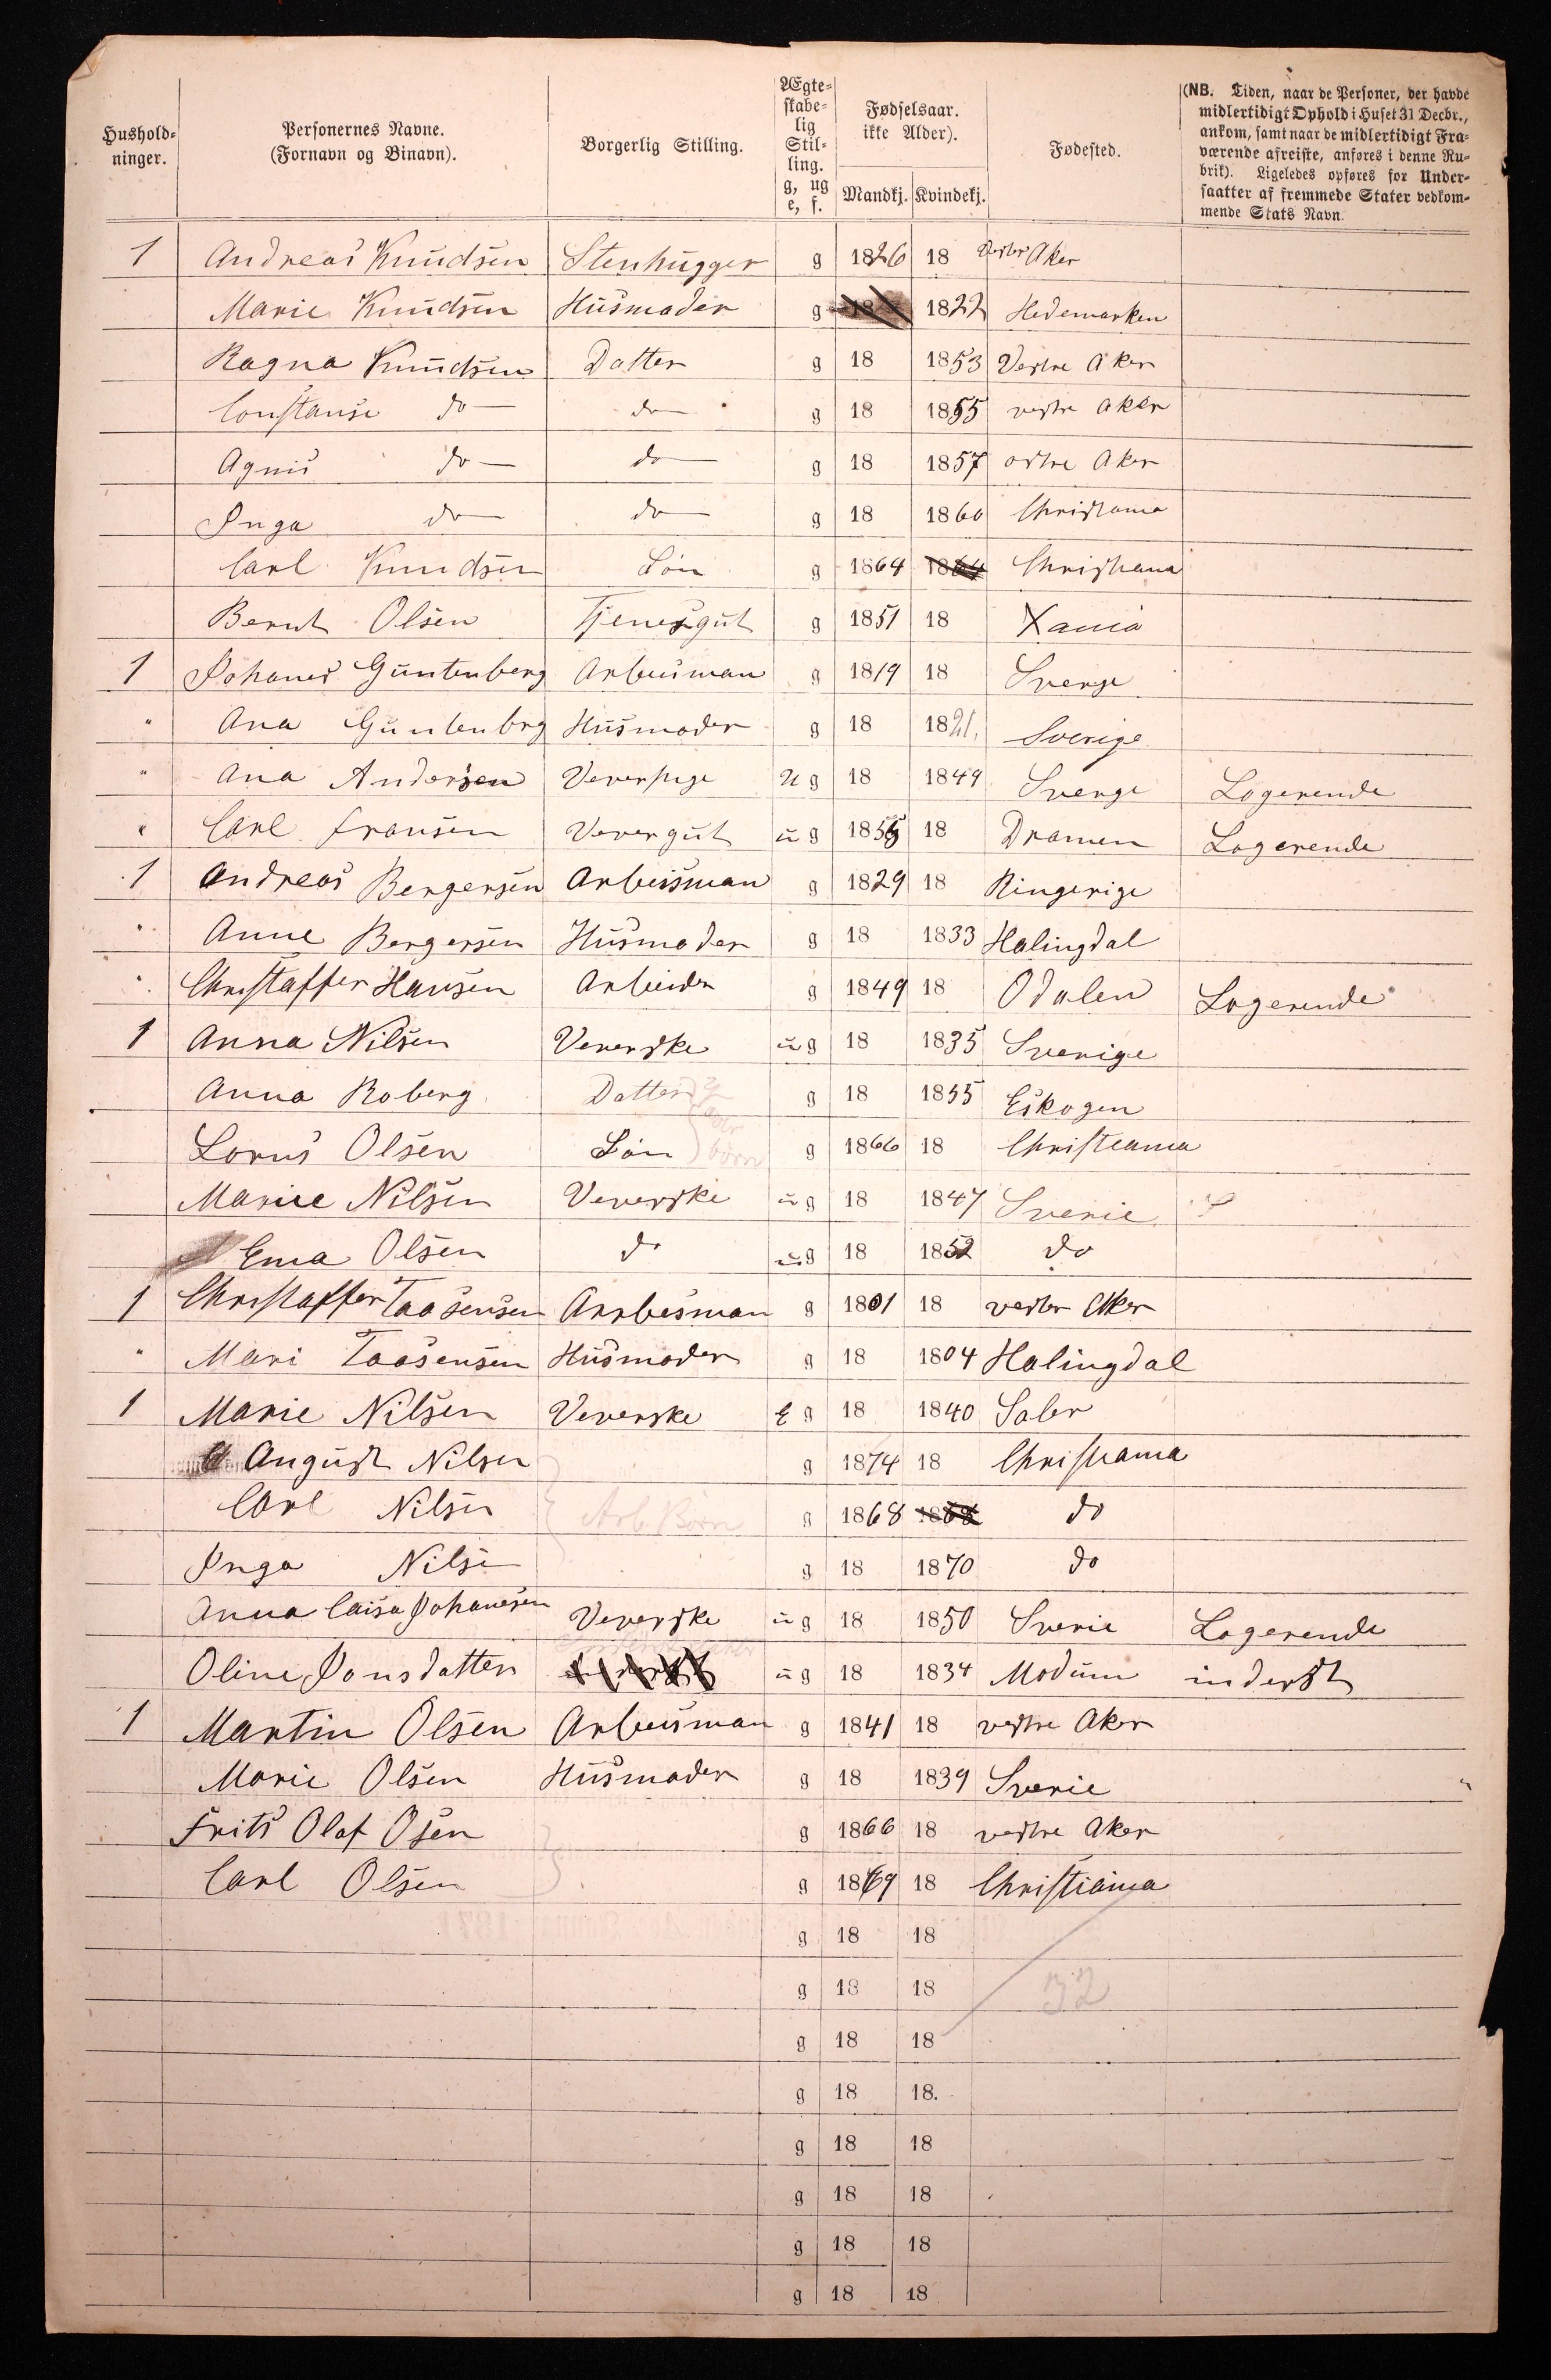 Hushold-
ninger.
Personernes Navne.
(Fornavn og Binavn).
Borgerlig Stilling.
Ægte-
skabe-
lig
Stil-
ling.
g, ug
e, f.
Fødselsaar.
ikke Alder).
Mandkj. Kvindekj.
Fødested.
(NB. Tiden, naar de Personer, der havde
midlertidigt Ophold i Huset 31 Decbr.,
ankom, samt naar de midlertidigt Fra-
værende afreiste, anføres i denne Ru-
brik). Ligeledes opføres for Under-
saatter af fremmede Stater vedkom-
mende Stats Navn.
1 Andreas Knudsen Stenhugger g 1826 18 Vestre Aker
Marie Knudsen Husmoder g 18 1822 Hedemarken
Ragna Knudsen Datter g 18 1853 Vestre Aker
Constanse do do g 18 1855 vestre Aker
Agnis do do g 18 1857 ostre Aker
Inga do do g 18 1860 Christiania
Carl Knudsen Søn g 1864 1864 Christiania
Bernt Olsen Tjenesgut g 1851 18 Xania
1 Johanes Guntenberg Arbeisman g 1819 18 Sverge
" Ana Guntenbrg Husmoder g 18 1821 Sverige
" Ana Andersen Veverpige u g 18 1849 Sverge Logerende
" Carl Fransen Vevergut u g 1855 18 Dramen Logerende
1 Andreas Bergersen Arbeisman g 1829 18 Ringerige
" Anne Bergersen Husmoder g 18 1833 Halingdal
" Christaffer Hansen Arbeider g 1849 18 Odalen Logerende
1 Anna Nilsen Ververske u g 18 1835 Sverige
Anna Roberg Datter g 18 1855 Eskogen
Lorns Olsen Søn børn g 1866 18 Christiania
Mariie Nilsen Ververske u g 18 1847 Sverie
Ema Olsen do u g 18 1852 do
1 Christaffer Taasensen Arbesman g 1801 18 vestre Aker
" Mari Taasensen Husmoder g 18 1804 Halingdal
1 Marie Nilsen Ververske E g 18 1840 Soler
August Nilsen g 1874 18 Christiania
Carl Nilsen Arb. Børn g 1868 1868 do
Inga Nilse g 18 1870 do
Anna Caisa Johanesen Ververske u g 18 1850 Sverie Logerende
Oline Jonsdatter u g 18 1834 Modum inderst
1 Martin Olsen Arbeisman g 1841 18 vestre Aker
Marie Olsen Husmoder g 18 1839 Sverie
Frits Olaf Osen g 1866 18 vestre Aker
Carl Olsen g 1869 18 Christiania
g 18 18
g 18 18 32
g 18 18
g 18 18.
g 18 18
g 18 18
g 18 18
g 18 18